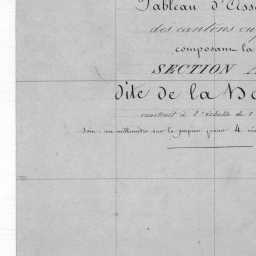 Tableau d'Asse
des cantons ou
composant la
SECTION
dite de la
construit à l'échelle de 1
Soit un millimètre sur le papier pour 4